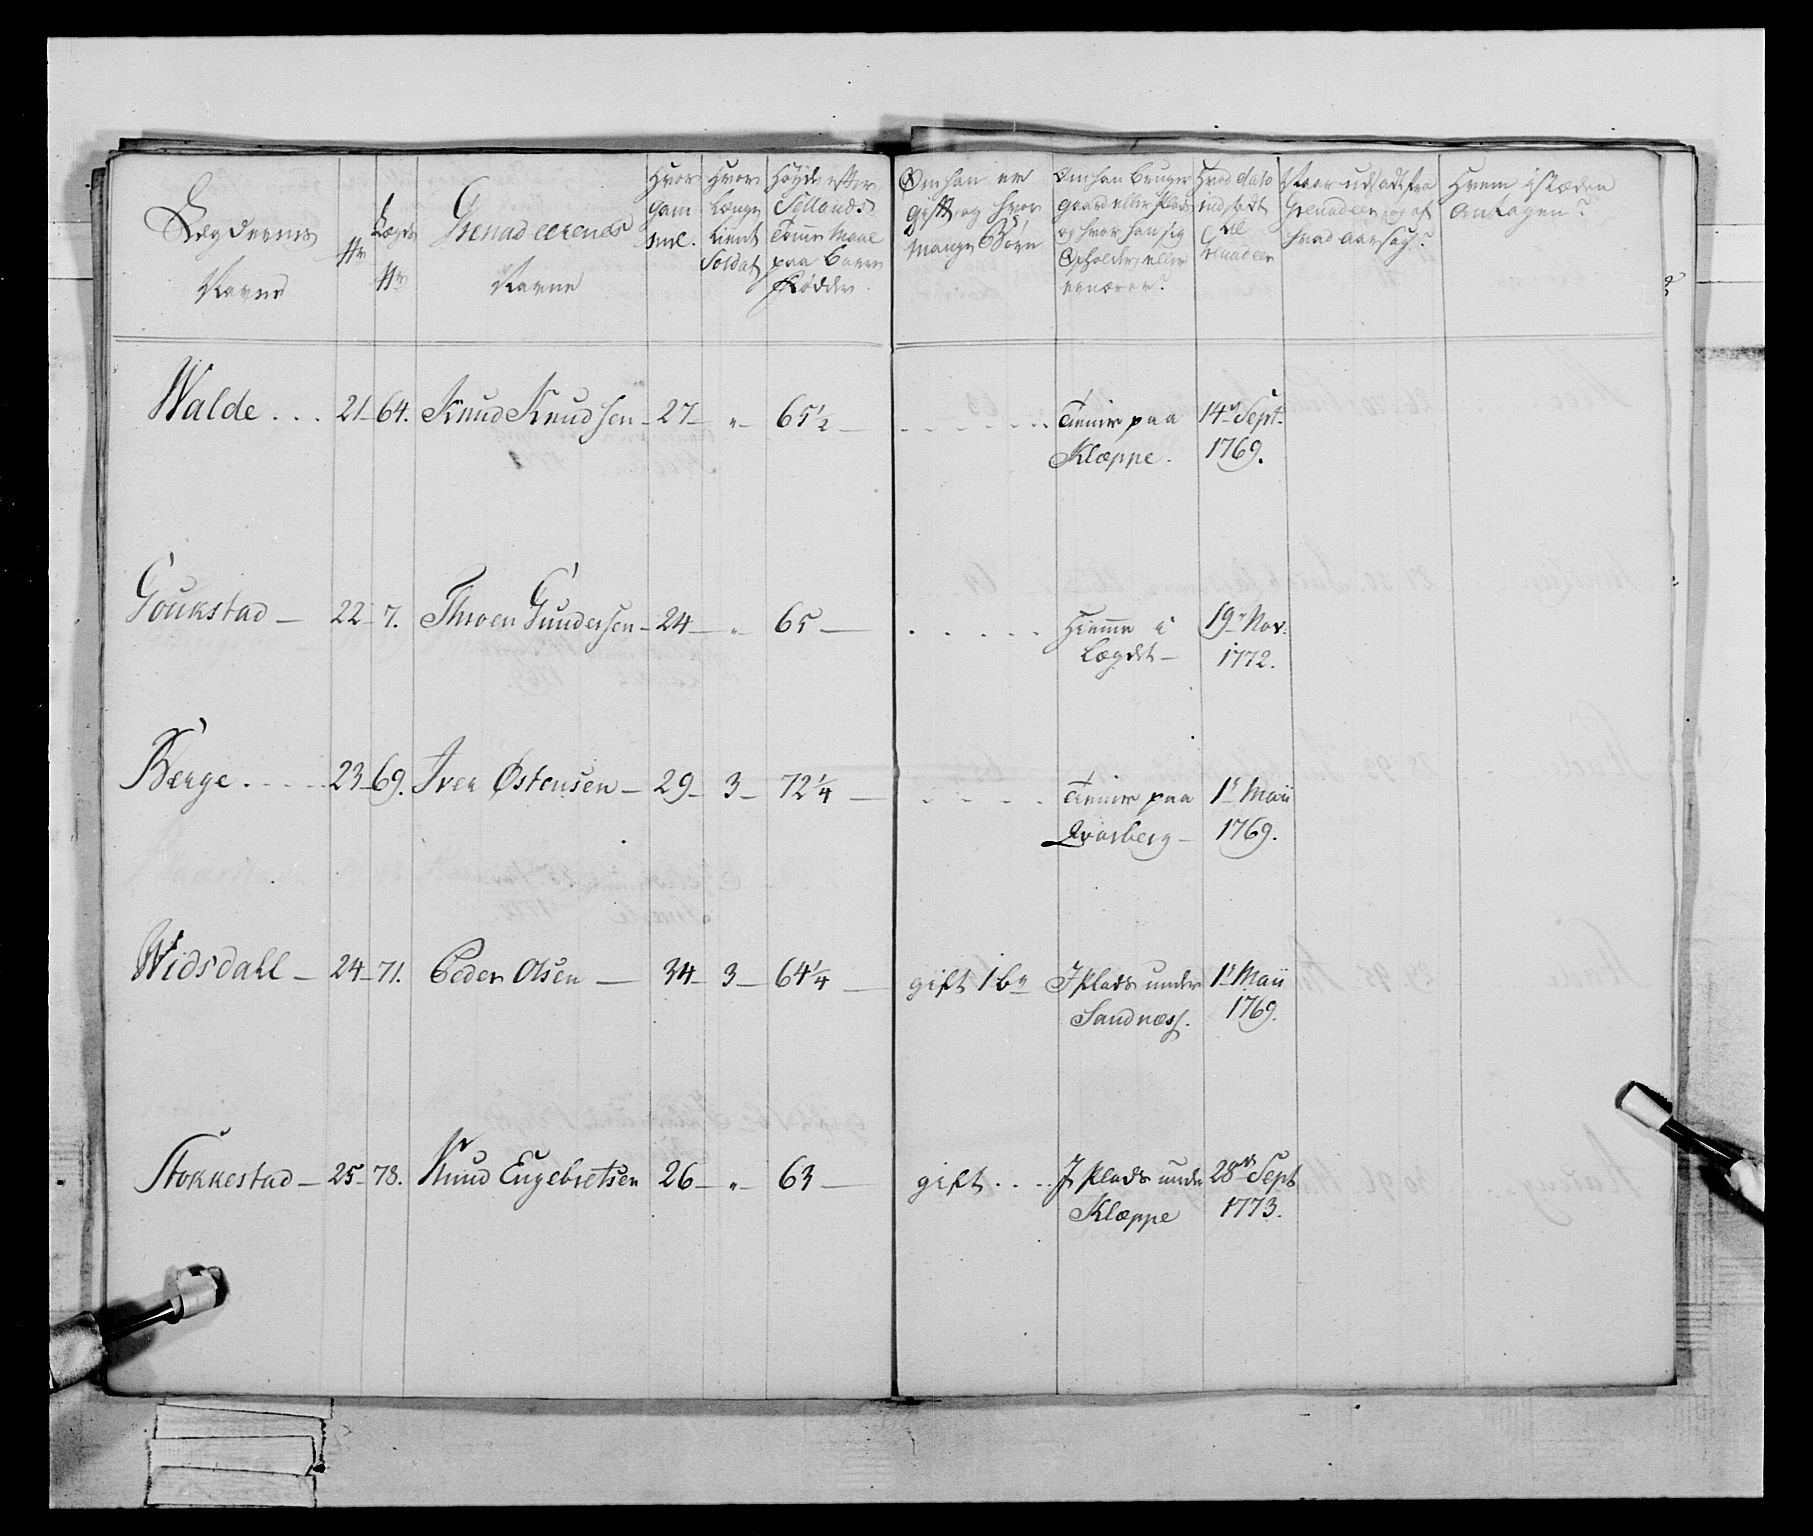 Lægdernes Navne
No
Lægds No
Grenadeerenes Navne
Hvor gam mel.
Hvor længe tient Soldat
Høyde efter Sellands Tomme Maal paa bare Fødder.
Om han er gift, og hvor mange Børn
Om han bruger gaard eller plads og hvor han sig opholder, eller ernærer?
Hvad dato indsadt til Grenadeer
Naar udsadt fra Grenadeer, og af hvad aarsag?
Hvem i stæden antagen?
Walde . . . 21 – 64. Knud Knudsen – 27 – " – 65 1/2 – . . . . . . Tiener paa 14de Sept.
Klæppe. 1769.
Goukstad – 22 – 7. Throen Gundersen – 24 – " – 65 – . . . . . Hiemme i 19de Nov.
Lægdet – 1772.
Berge . . . . 23 – 69. Iver Østensen – 29 – 3 – 72 1/4 – . . . . Tiener paa 1te Maii
Qvarberg – 1769.
Widsdahl – 24 – 71. Peder Olsen – 34 – 3 – 64 1/4 – gift 1 bn J Plads under 1te Maii
Sandness. 1769.
Stokkestad – 25 – 78. Knud Engebretsen 26 – " – 63 – gift . . . . J Plads under 28de Sept
Klæppe 1773.